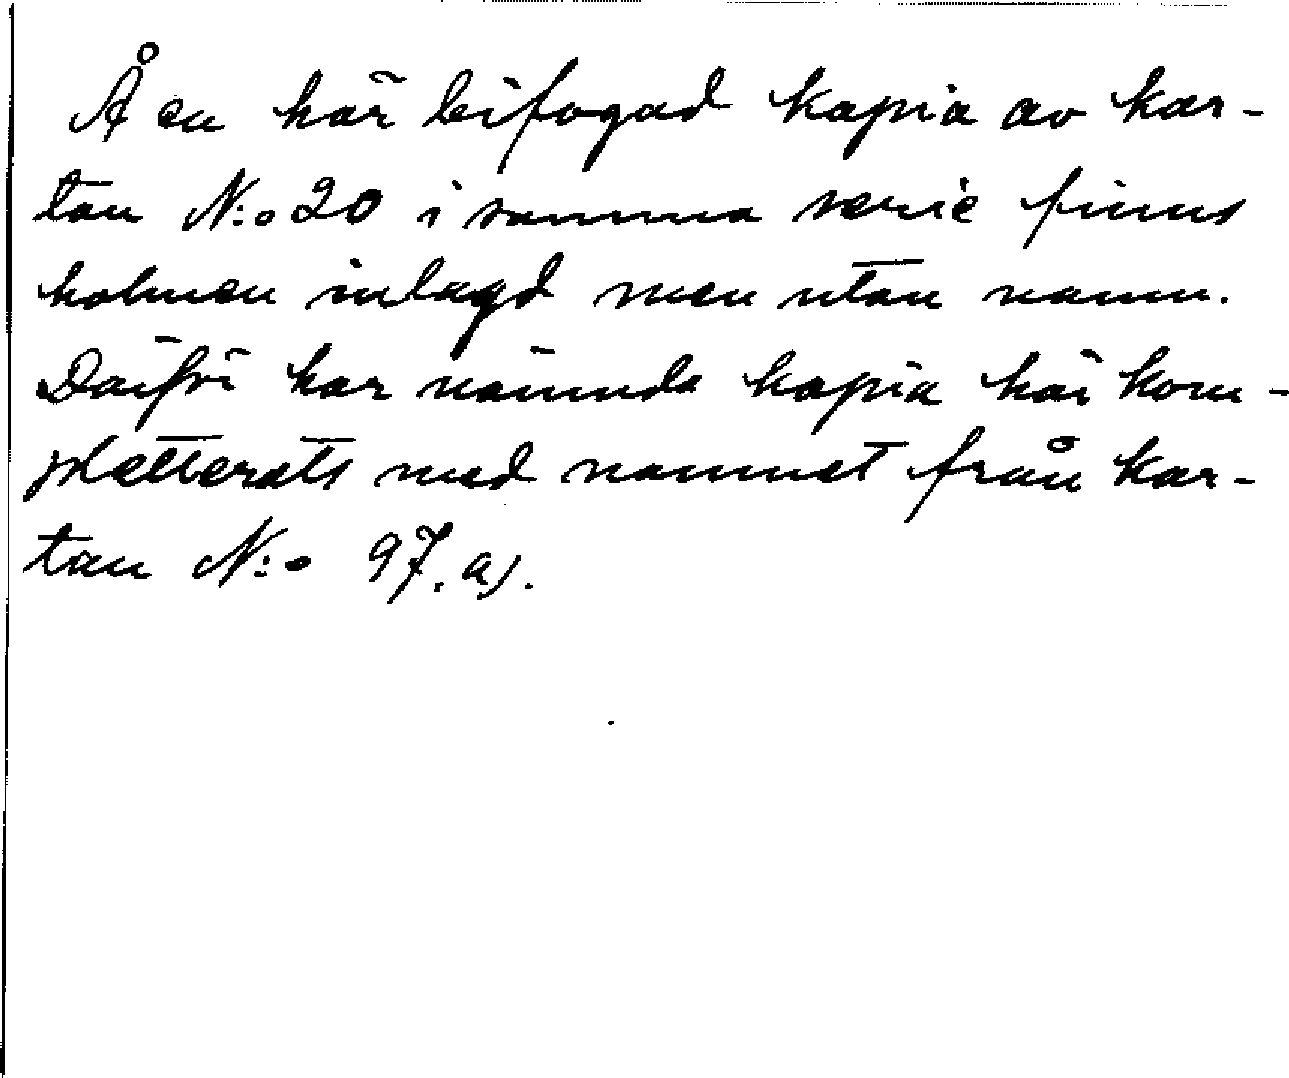 Å en här bifogad kopia av kar-
tan N:o 20 i samma serie finns
holmen inlagd men utan namn.
Därför har nämnda kopia här kom-
pletterats med namnet från kar-
tan N:o 97. a).